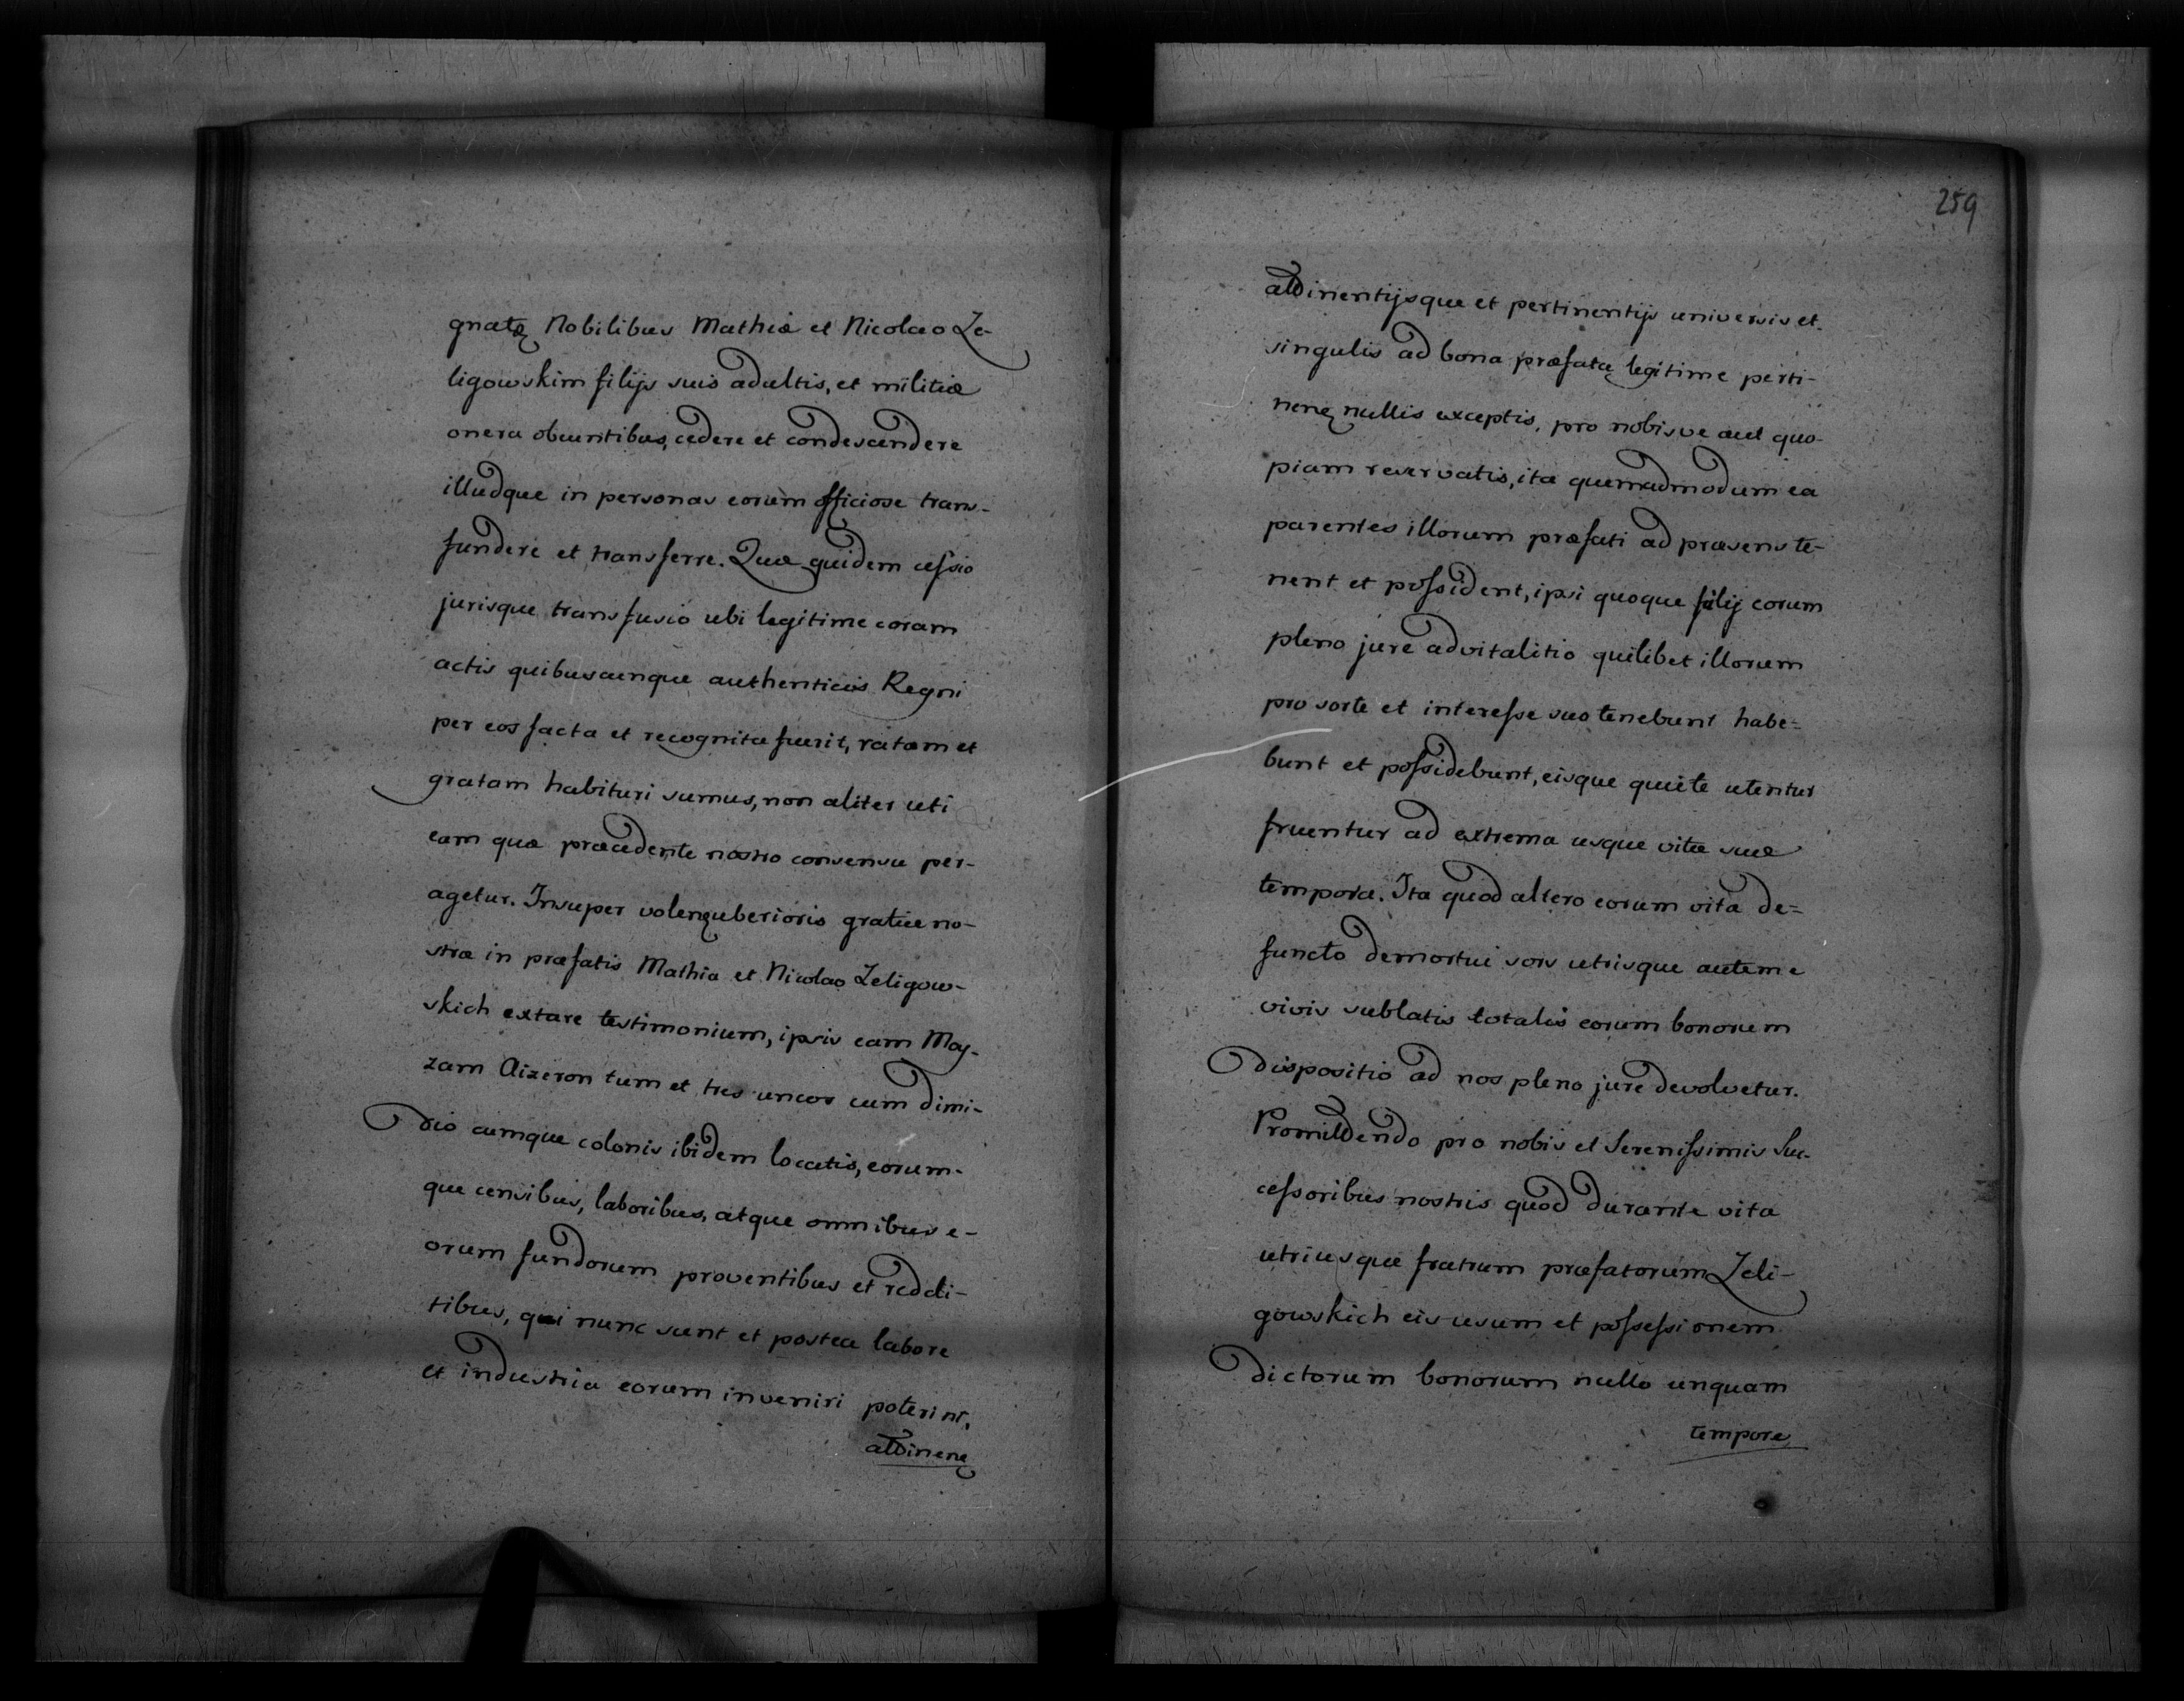 gnatę Nobilibus Mathiæ et Nicolao Ze-
ligowskim filijs suis adultis, et militiæ
onera obeuntibus, cedere et condescendere
illudque in personas eorum officiose trans-
fundere et transferre. Quæ quidem cessio
jurisque transfusio ubi legitime coram
actis quibuscunque authenticis Regni
per eos facta et recognita fuerit, ratam et
gratam habituri sumus, non aliter uti
eam quæ præcedente nostro consensu per-
agetur. Insuper volenę uberioris gratiæ no-
stræ in præfatis Mathia et Nicolao Zeligow-
skich extare testimonium, ipsis eam May-
zam Aizeron tum et tres uncos cum dimi-
dio cumque colonis ibidem locatis, eorum-
que censibus, laboribus, atque omnibus e-
orum fundorum proventibus et reddi-
tibus, qui nunc sunt et postea labore
et industria eorum inveniri poterint,
attinenę
259
attinentijsque et pertinentijs universis et
singulis ad bona præfata legitime perti-
nenę nullis exceptis, pro nobisve aut quo-
piam reservatis, ita quemadmodum ea
parentes illorum præfati ad præsens te-
nent et possident, ipsi quoque filij eorum
pleno jure advitalitio quilibet illorum
pro sorte et interesse suo tenebunt habe=
bunt et possidebunt, eisque quiete utentur
fruentur ad extrema usque vitæ suæ
tempora. Ita quod altero eorum vita de=
functo demortui sors utrisque autem e
vivis sublatis totalis eorum bonorum
dispositio ad nos pleno jure devolvetur.
Promittendo pro nobis et Serenissimis Suc-
cessoribus nostris quod durante vita
utriusque fratrum præfatorum Zeli-
gowskich eis usum et possessionem
dictorum bonorum nullo unquam
tempore